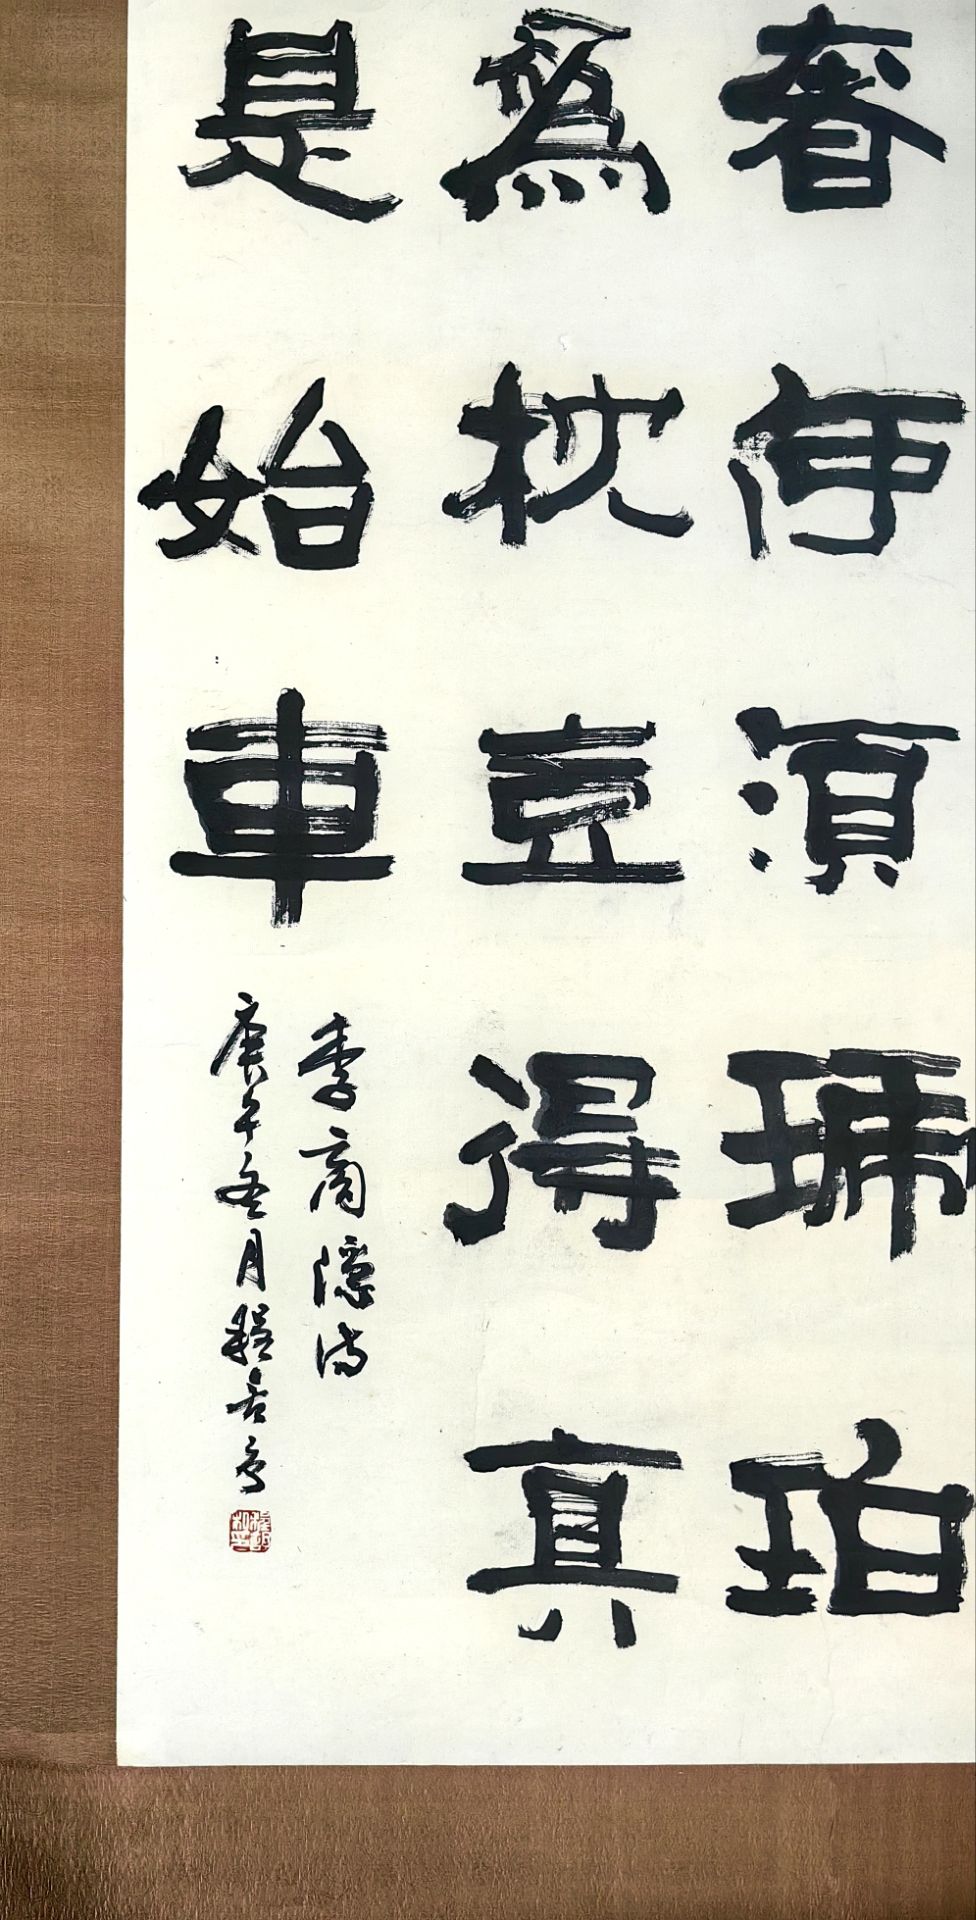 奢何湏琥珀
爲枕豈得真
是始車
李商隱詩
庚午冬月